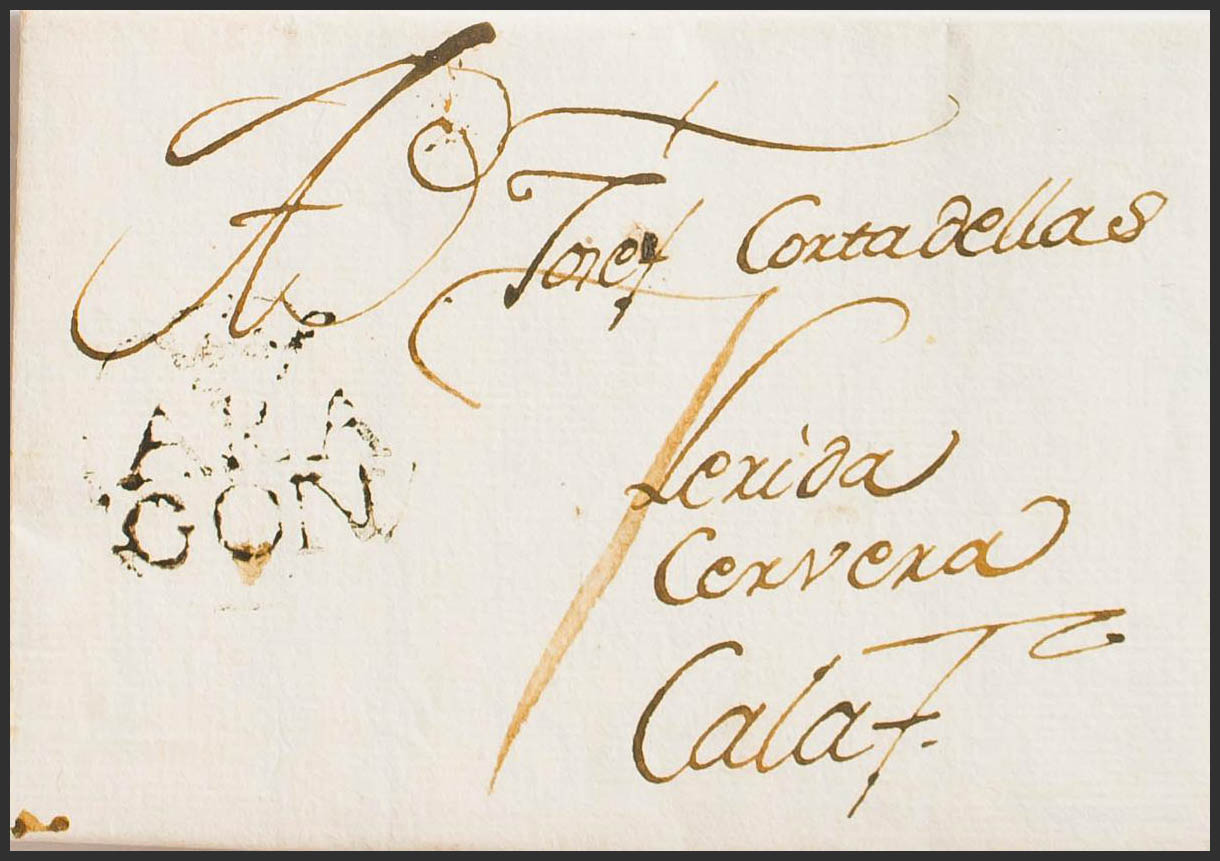 A Dn Josef Cortadellas
ARA
GON
Lerida
Cervera
Calaf.